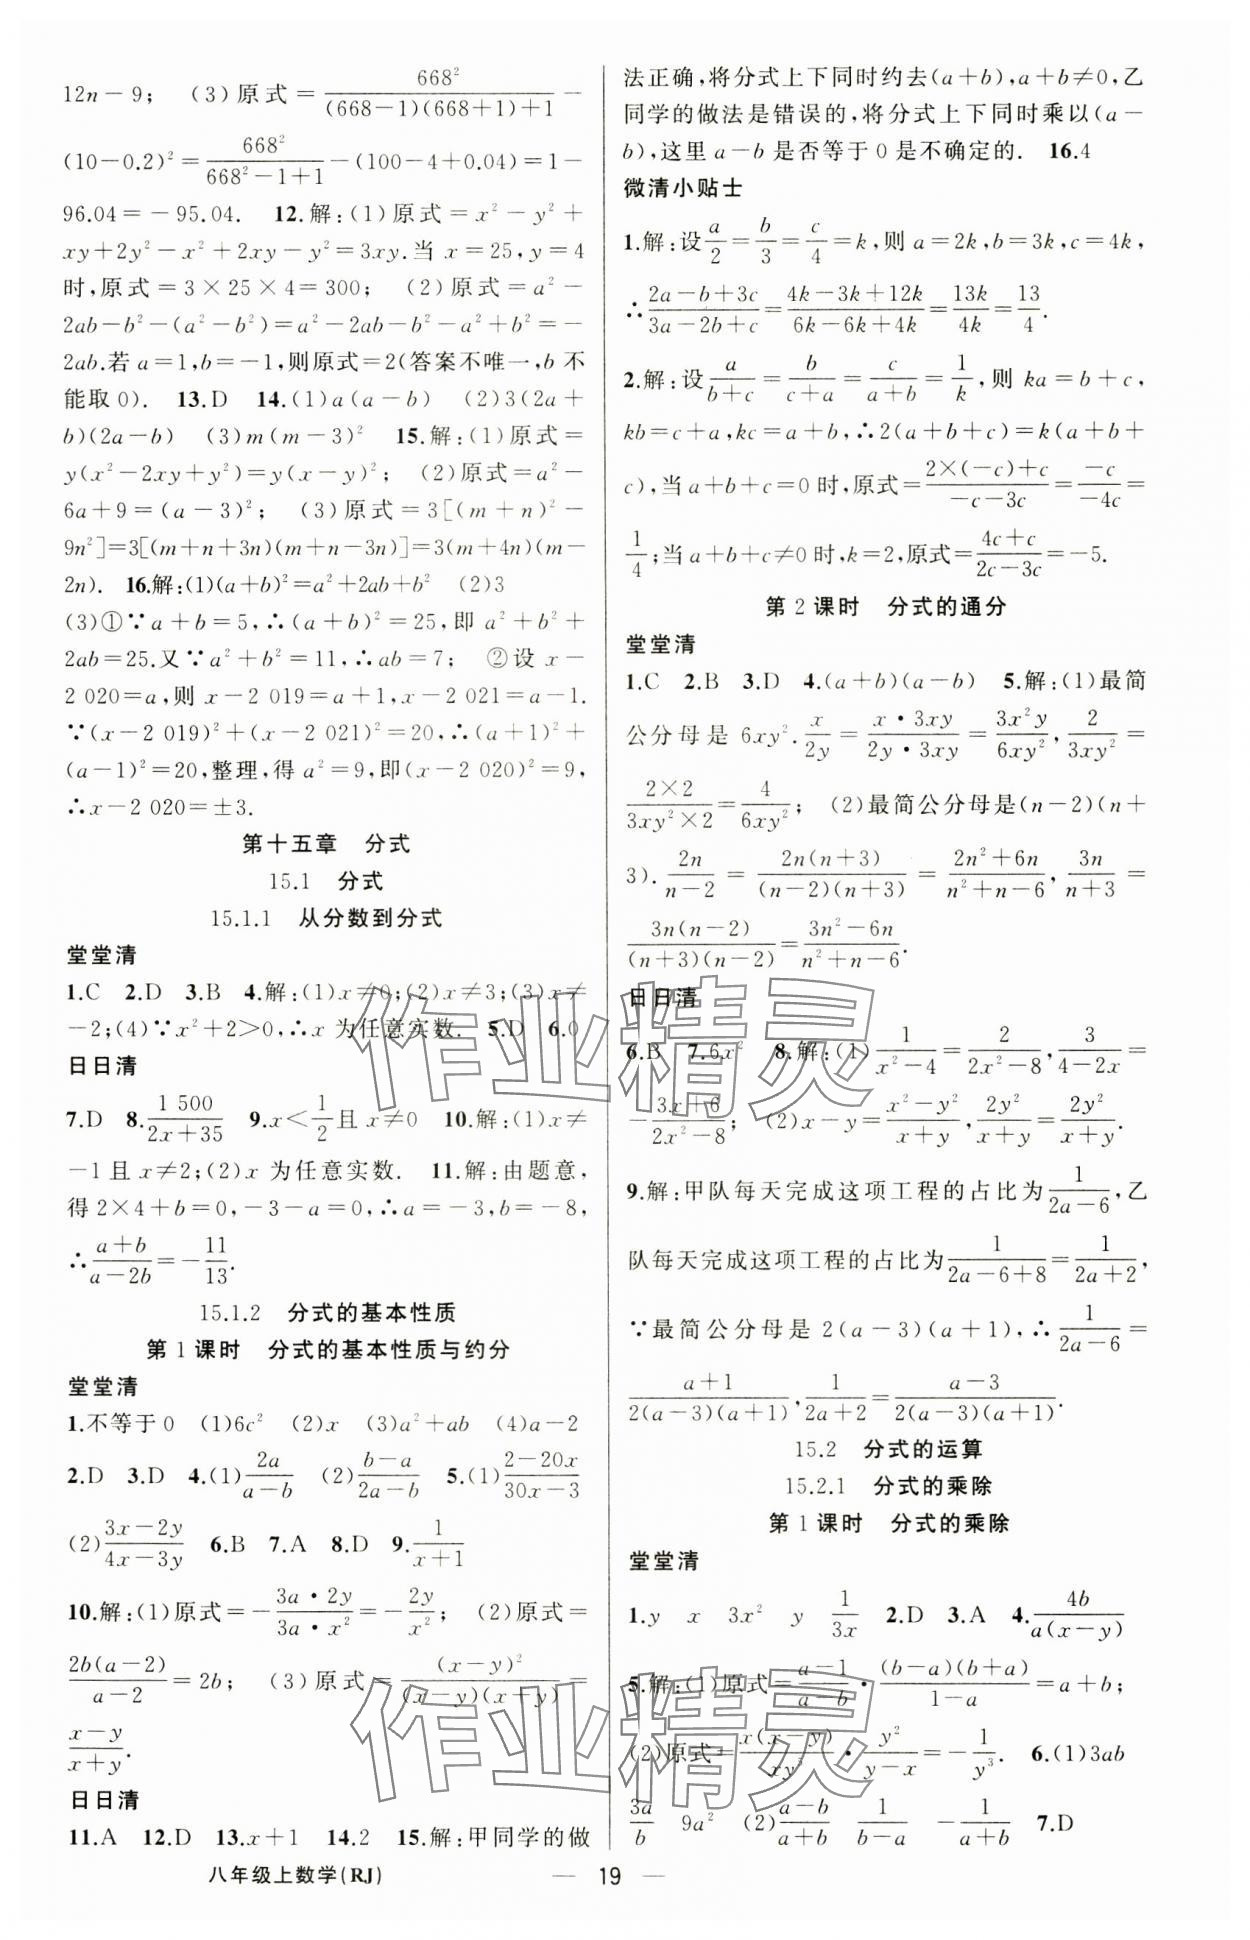 12n－9； (3)原式＝668²/((668－1)(668＋1)＋1)－
(10－0.2)²＝668²/(668²－1＋1)－(100－4＋0.04)＝1－
96.04＝－95.04. 12.解:(1)原式＝x²－y²＋
xy＋2y²－x²＋2xy－y²＝3xy.当 x＝25,y＝4
时,原式＝3×25×4＝300； (2)原式＝a²－
2ab－b²－(a²－b²)＝a²－2ab－b²－a²＋b²＝－
2ab.若 a＝1,b＝－1,则原式＝2(答案不唯一,b 不
能取 0). 13.D 14.(1)a(a－b) (2)3(2a＋
b)(2a－b) (3)m(m－3)² 15.解:(1)原式＝
y(x²－2xy＋y²)＝y(x－y)²； (2)原式＝a²－
6a＋9＝(a－3)²； (3)原式＝3[(m＋n)²－
9n²]＝3[(m＋n＋3n)(m＋n－3n)]＝3(m＋4n)(m－
2n). 16.解:(1)(a＋b)²＝a²＋2ab＋b² (2)3
(3)①∵a＋b＝5,∴(a＋b)²＝25,即 a²＋b²＋
2ab＝25.又∵a²＋b²＝11,∴ab＝7； ②设 x－
2 020＝a,则 x－2 019＝a＋1,x－2 021＝a－1.
∵(x－2 019)²＋(x－2 021)²＝20,∴(a＋1)²＋
(a－1)²＝20,整理,得 a²＝9,即(x－2 020)²＝9,
∴x－2 020＝±3.
第十五章 分式
15.1 分式
15.1.1 从分数到分式
堂堂清
1.C 2.D 3.B 4.解:(1)x≠0;(2)x≠3;(3)x≠
－2;(4)∵x²＋2＞0,∴x 为任意实数. 5.D 6.0
日日清
7.D 8.1 500/(2x＋35) 9.x＜1/2且 x≠0 10.解:(1)x≠
－1 且 x≠2;(2)x 为任意实数. 11.解:由题意,
得 2×4＋b＝0,－3－a＝0,∴a＝－3,b＝－8,
∴(a＋b)/(a－2b)＝－11/13.
15.1.2 分式的基本性质
第 1 课时 分式的基本性质与约分
堂堂清
1.不等于 0 (1)6c² (2)x (3)a²＋ab (4)a－2
2.D 3.D 4.(1)2a/(a－b) (2)(b－a)/(2a－b) 5.(1)(2－20x)/(30x－3)
(2)(3x－2y)/(4x－3y) 6.B 7.A 8.D 9.1/(x＋1)
10.解:(1)原式＝－(3a·2y)/(3a·x²)＝－2y/x²； (2)原式＝
2b(a－2)/(a－2)＝2b； (3)原式＝(x－y)²/((x－y)(x＋y))＝
(x－y)/(x＋y).
日日清
11.A 12.D 13.x＋1 14.2 15.解:甲同学的做
法正确,将分式上下同时约去(a＋b),a＋b≠0,乙
同学的做法是错误的,将分式上下同时乘以(a－
b),这里 a－b 是否等于 0 是不确定的. 16.4
微清小贴士
1.解:设a/2＝b/3＝c/4＝k,则 a＝2k,b＝3k,c＝4k,
∴(2a－b＋3c)/(3a－2b＋c)＝(4k－3k＋12k)/(6k－6k＋4k)＝13k/4k＝13/4.
2.解:设a/(b＋c)＝b/(c＋a)＝c/(a＋b)＝1/k,则 ka＝b＋c,
kb＝c＋a,kc＝a＋b,∴2(a＋b＋c)＝k(a＋b＋
c),当 a＋b＋c＝0 时,原式＝(2×(－c)＋c)/(－c－3c)＝－c/－4c＝
1/4;当 a＋b＋c≠0 时,k＝2,原式＝(4c＋c)/(2c－3c)＝－5.
第 2 课时 分式的通分
堂堂清
1.C 2.B 3.D 4.(a＋b)(a－b) 5.解:(1)最简
公分母是 6xy².x/2y＝(x·3xy)/(2y·3xy)＝3x²y/6xy²,2/3xy²＝
(2×2)/(3xy²×2)＝4/6xy²； (2)最简公分母是(n－2)(n＋
3).2n/(n－2)＝2n(n＋3)/((n－2)(n＋3))＝(2n²＋6n)/(n²＋n－6),3n/(n＋3)＝
3n(n－2)/((n＋3)(n－2))＝(3n²－6n)/(n²＋n－6).
日日清
6.B 7.6x² 8.解:(1)1/(x²－4)＝2/(2x²－8),3/(4－2x)＝
－(3x＋6)/(2x²－8)； (2)x－y＝(x²－y²)/(x＋y),2y²/(x＋y)＝2y²/(x＋y).
9.解:甲队每天完成这项工程的占比为1/(2a－6),乙
队每天完成这项工程的占比为1/(2a－6＋8)＝1/(2a＋2),
∵最简公分母是 2(a－3)(a＋1),∴1/(2a－6)＝
(a＋1)/(2(a－3)(a＋1)),1/(2a＋2)＝(a－3)/(2(a－3)(a＋1)).
15.2 分式的运算
15.2.1 分式的乘除
第 1 课时 分式的乘除
堂堂清
1.y x 3x² y 1/3x 2.D 3.A 4.4b/(a(x－y))
5.解:(1)原式＝(a－1)/(a－b)·(b－a)(b＋a)/(1－a)＝a＋b；
(2)原式＝x(x－y)/xy⁵·y²/(y－x)＝－1/y³. 6.(1)3ab
3a/b 9a² (2)(a－b)/(a＋b) 1/(b－a) －1/(a＋b) 7.D
八年级上数学(RJ)
— 19 —
作业精灵
作业精灵